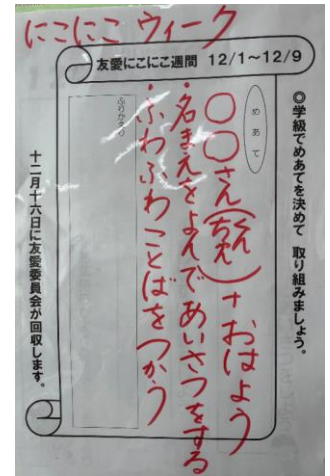 にこにこ ウィーク
友愛にこにこ週間 12/1～12/9
◎学級でめあてを決めて 取り組みましょう。
めあて
○○さん(くん ちゃん)+おはよう
・名まえをよんであいさつをする
・ふわふわことばをつかう
ふりかえり
十二月十六日に友愛委員会が回収します。